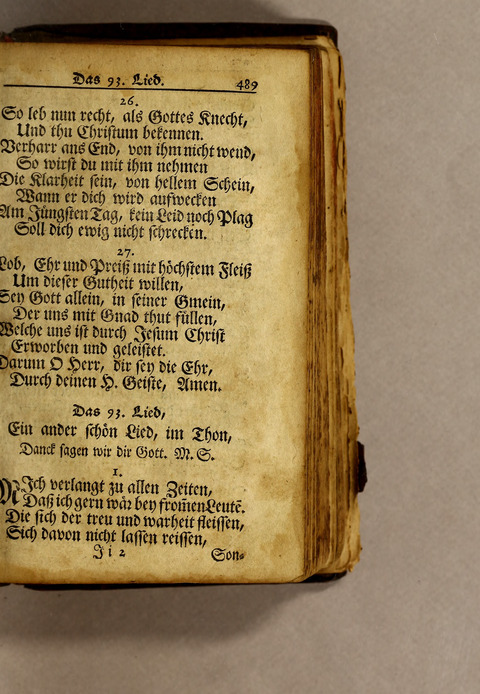 Das 93. Lied. 489
26.
So leb nun recht, als Gottes Knecht,
Und thu Christum bekennen.
Verharr ans End, von ihm nicht wend,
So wirst du mit ihm nehmen
Die Klarheit sein, von hellem Schein,
Wann er dich wird aufwecken
Am Jüngsten Tag, kein Leid noch Plag
Soll dich ewig nicht schrecken.
27.
Lob, Ehr und Preiß mit höchstem Fleiß
Um dieser Gutheit willen,
Sey Gott allein, in seiner Gmein,
Der uns mit Gnad thut füllen,
Welche uns ist durch Jesum Christ
Erworben und geleistet.
Darum O Herr, dir sey die Ehr,
Durch deinen H. Geiste, Amen.
Das 93. Lied,
Ein ander schön Lied, im Thon,
Danck sagen wir dir Gott. M. S.
1.
MIch verlangt zu allen Zeiten,
Daß ich gern wär bey from̄en Leutē.
Die sich der treu und warheit fleissen,
Sich davon nicht lassen reissen,
J i 2 Son-